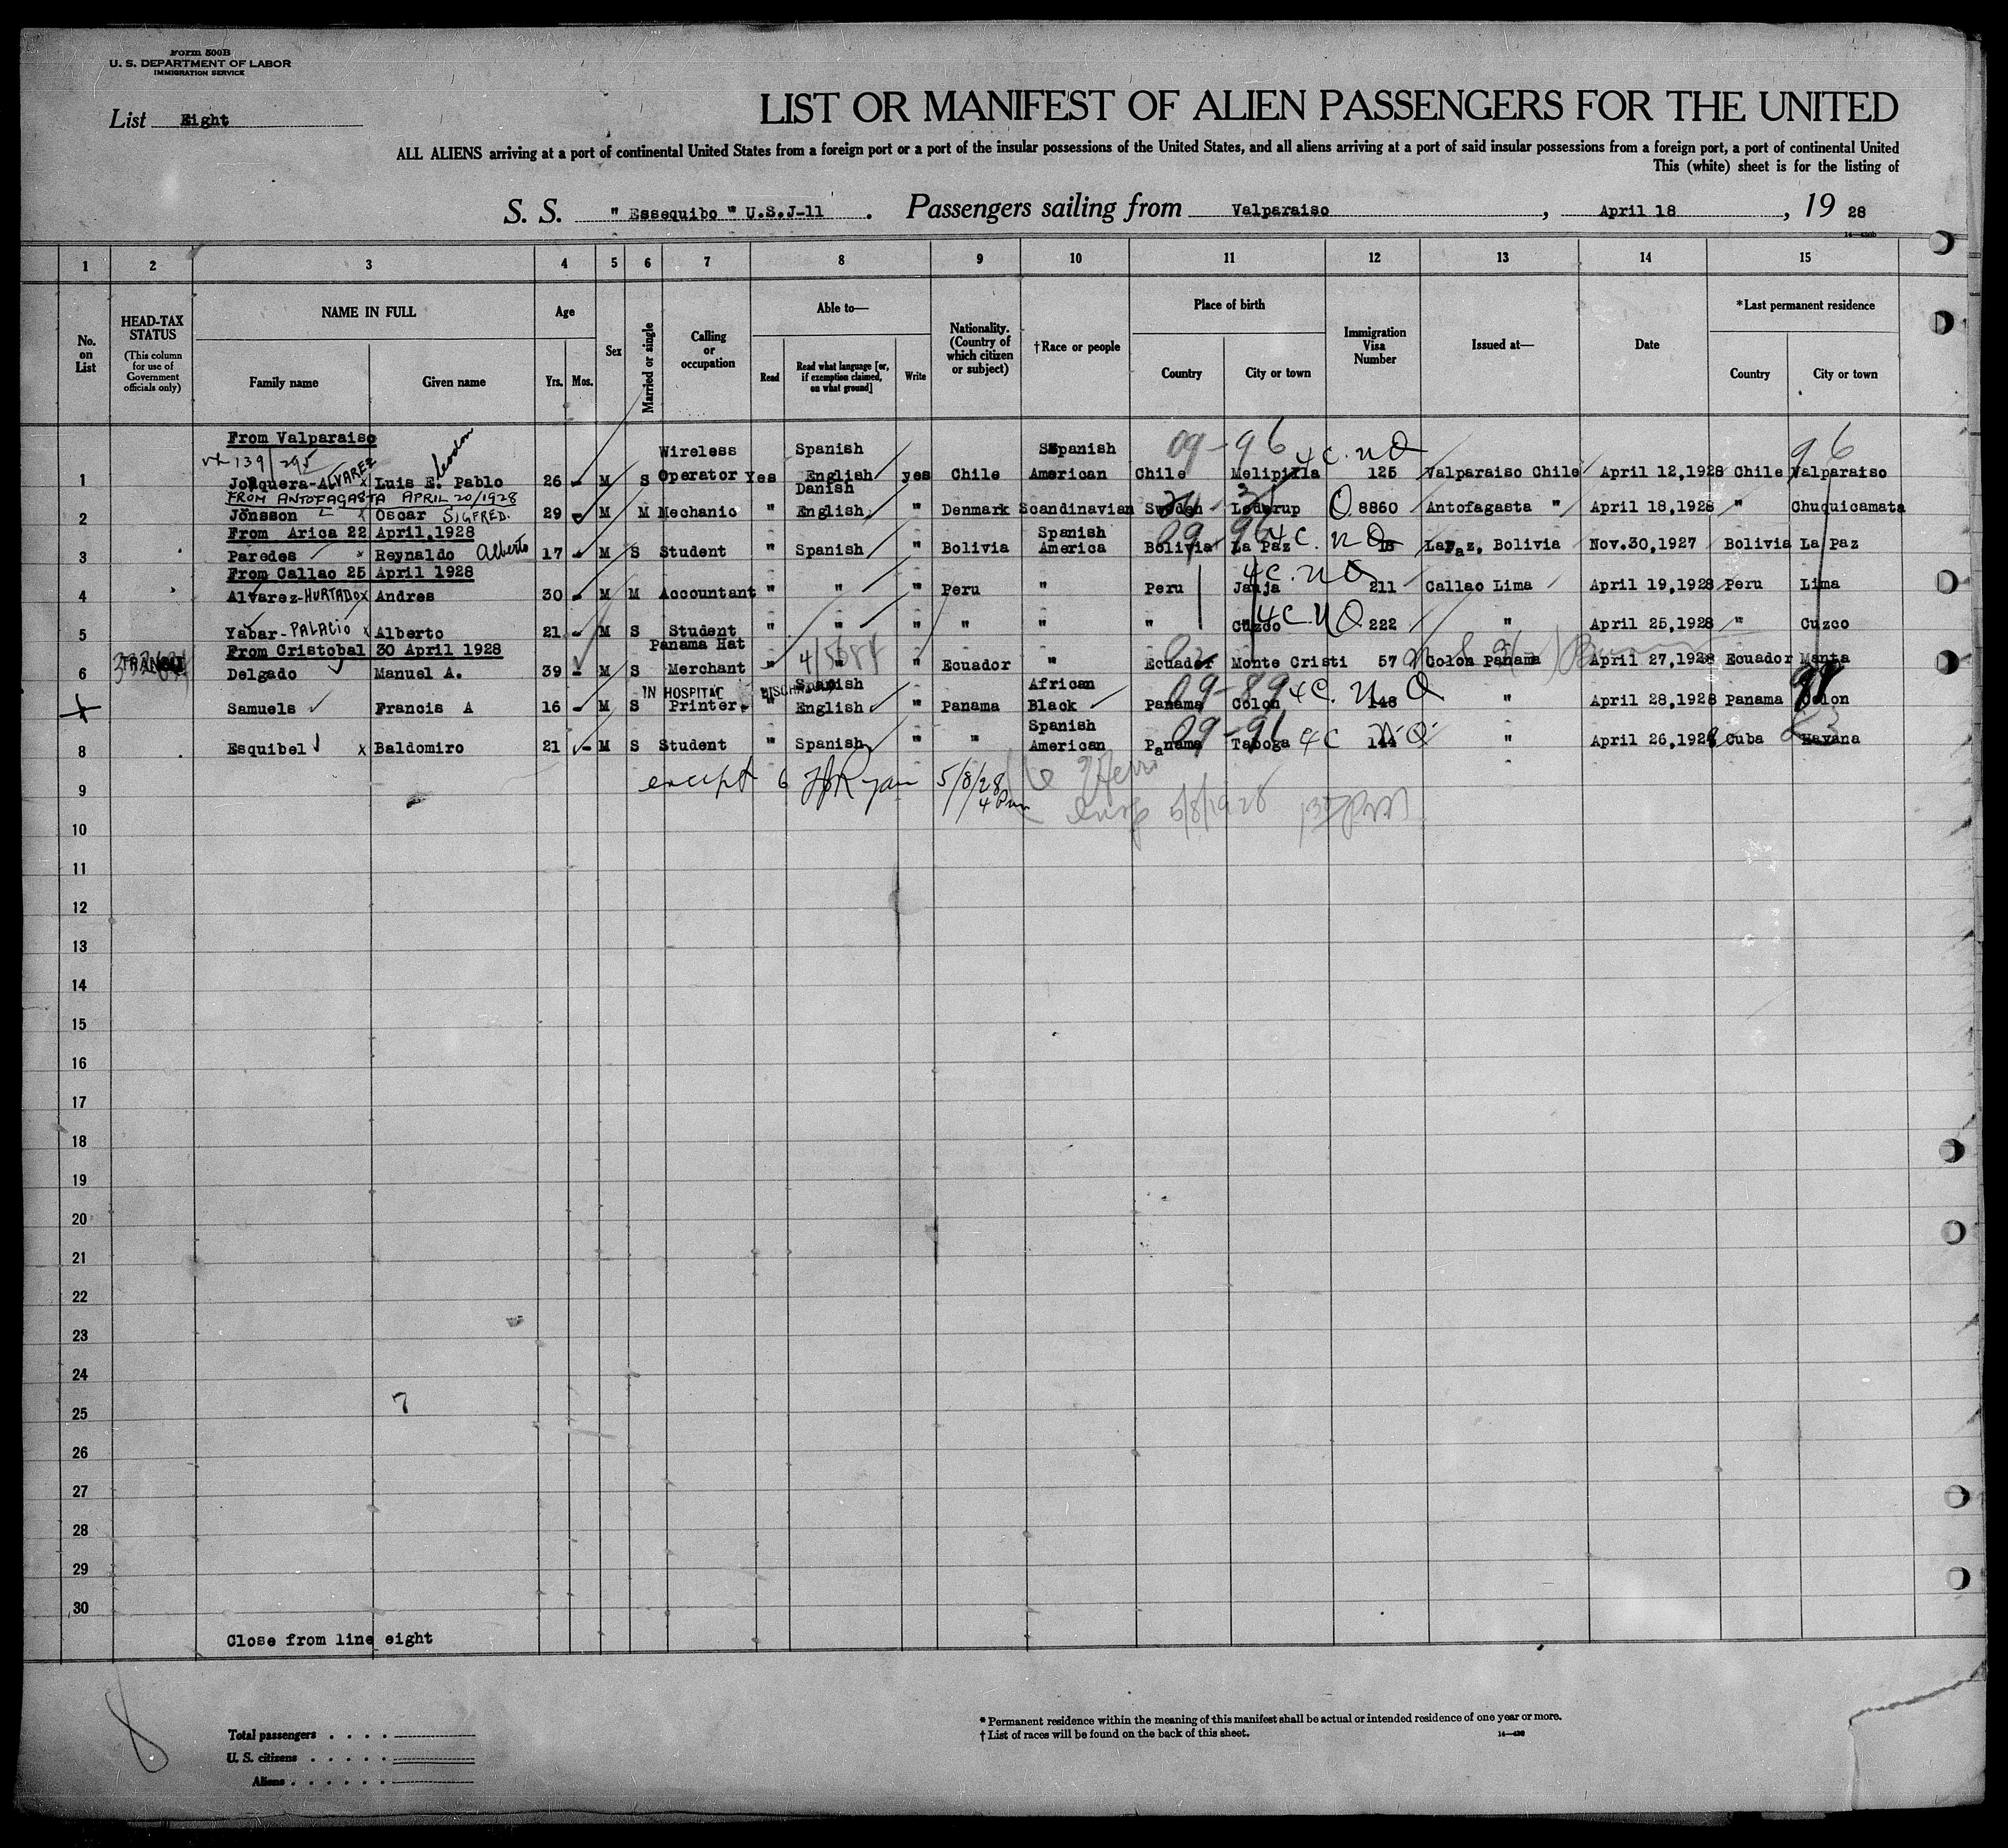 Form 500B
U. S. DEPARTMENT OF LABOR
IMMIGRATION SERVICE
List Eight
LIST OR MANIFEST OF ALIEN PASSENGERS FOR THE UNITED
ALL ALIENS arriving at a port of continental United States from a foreign port or a port of the insular possessions of the United States, and all aliens arriving at a port of said insular possessions from a foreign port, a port of continental United
This (white) sheet is for the listing of
S. S. " Essequibo " U.S.J-11 . Passengers sailing from Valparaiso , April 18 , 19 28
1 2 3 4 5 6 7 8 9 10 11 12 13 14 15
No. on List
HEAD-TAX STATUS
(This column for use of Government officials only)
NAME IN FULL
Family name Given name
Age
Yrs. Mos.
Sex
Married or single
Calling or occupation
Able to—
Read
Read what language [or, if exemption claimed, on what ground]
Write
Nationality. (Country of which citizen or subject)
†Race or people
Place of birth
Country City or town
Immigration Visa Number
Issued at—
Date
*Last permanent residence
Country City or town
From Valparaiso
139/295
Wireless Spanish Spanish 09-96 4C. NQ 96
1 Jorquera-ALVAREZ x Luis E. Pablo 26 M S Operator Yes English yes Chile American Chile Melipilla 125 Valparaiso Chile April 12,1928 Chile Valparaiso
FROM ANTOFAGASTA APRIL 20/1928
Danish
2 Jönsson Oscar SIGFRED. 29 M M Mechanic " English " Denmark Scandinavian Sweden Loderup Q 8860 Antofagasta " April 18,1928 " Chuquicamata
From Arica 22 April,1928
Spanish 09-96 4C. NQ
3 Paredes x Reynaldo Alberto 17 M S Student " Spanish " Bolivia America Bolivia La Paz LaPaz, Bolivia Nov.30,1927 Bolivia La Paz
From Callao 25 April 1928
4C. NQ
4 Alvarez-HURTADO x Andres 30 M M Accountant " " " Peru " Peru Jauja 211 Callao Lima April 19,1928 Peru Lima
4C. NQ
5 Yabar-PALACIO x Alberto 21 M S Student " " " " " " Cuzco 222 " April 25,1928 " Cuzco
From Cristobal 30 April 1928
Panama Hat
TRANSIT
6 Delgado Manuel A. 39 M S Merchant " " " Ecuador " Ecuador Monte Cristi 57 Colon Panama April 27,1928 Ecuador Manta
IN HOSPITAL DISCHARGED
Spanish African 09-89 4C. N Q
Samuels Francis A 16 M S Printer. " English " Panama Black Panama Colon 148 " April 28,1928 Panama Colon
Spanish 09-91 4C NQ
8 Esquibel x Baldomiro 21 M S Student " Spanish " " American Panama Taboga 144 " April 26,1928 Cuba Havana
except 6 Ryan 5/8/28 4 Pm
5/8/1928
9
10
11
12
13
14
15
16
17
18
19
20
21
22
23
24
25 7
26
27
28
29
30
Close from line eight
8
Total passengers . . . .
U. S. citizens . . . . .
Aliens . . . . . .
* Permanent residence within the meaning of this manifest shall be actual or intended residence of one year or more.
† List of races will be found on the back of this sheet.